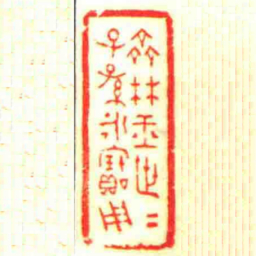 林世二
子孫永寶用